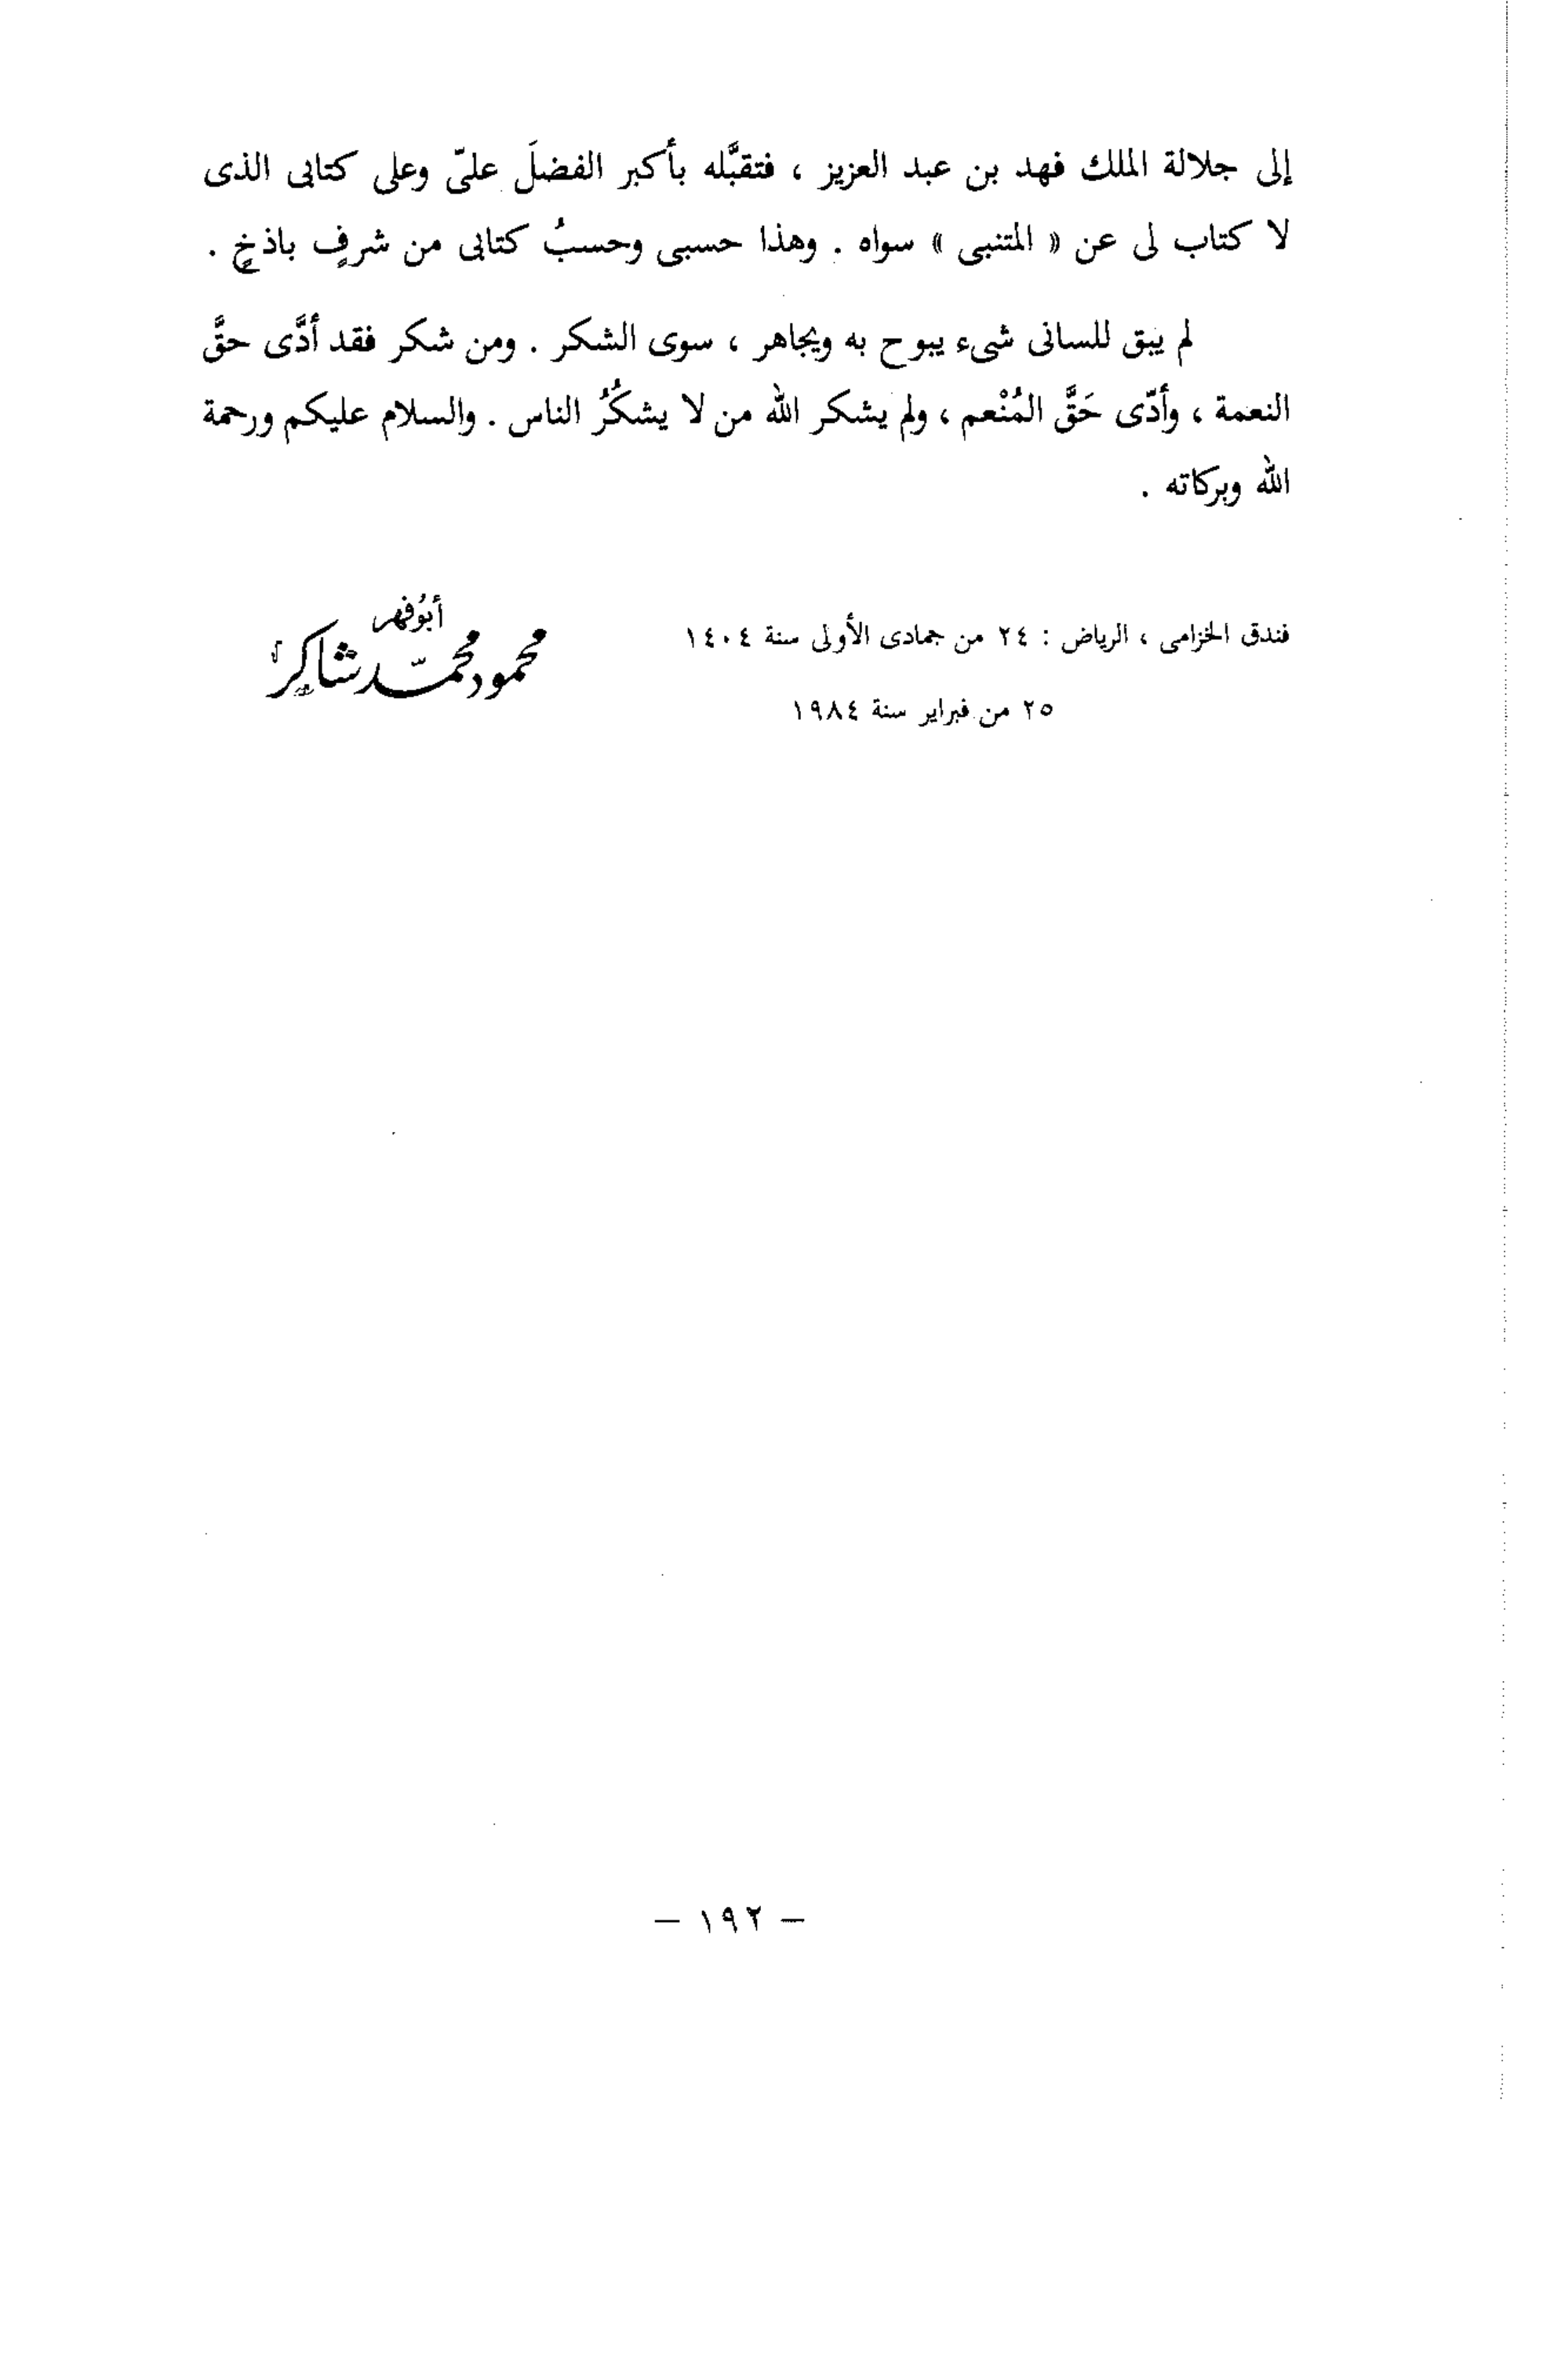 إلى جلالة الملك فهد بن عبد العزيز ، فتقبَّله بأكبر الفضلَ علىّ وعلى كتابى الذى
لا كتاب لى عن « المتنبى » سواه . وهذا حسبى وحسبُ كتابى من شرفٍ باذخٍ .
لم يبق للسانى شىء يبوح به ويجاهر ، سوى الشكر . ومن شكر فقد أدَّى حقَّ
النعمة ، وأدّى حَقَّ المُنْعم ، ولم يشكر الله من لا يشكُرُ الناس . والسلام عليكم ورحمة
الله وبركاته .
فندق الخزامى ، الرياض : ٢٤ من جمادى الأولى سنة ١٤٠٤
٢٥ من فبراير سنة ١٩٨٤
أبو فهر
محمود محمد شاكر
— ١٩٢ —